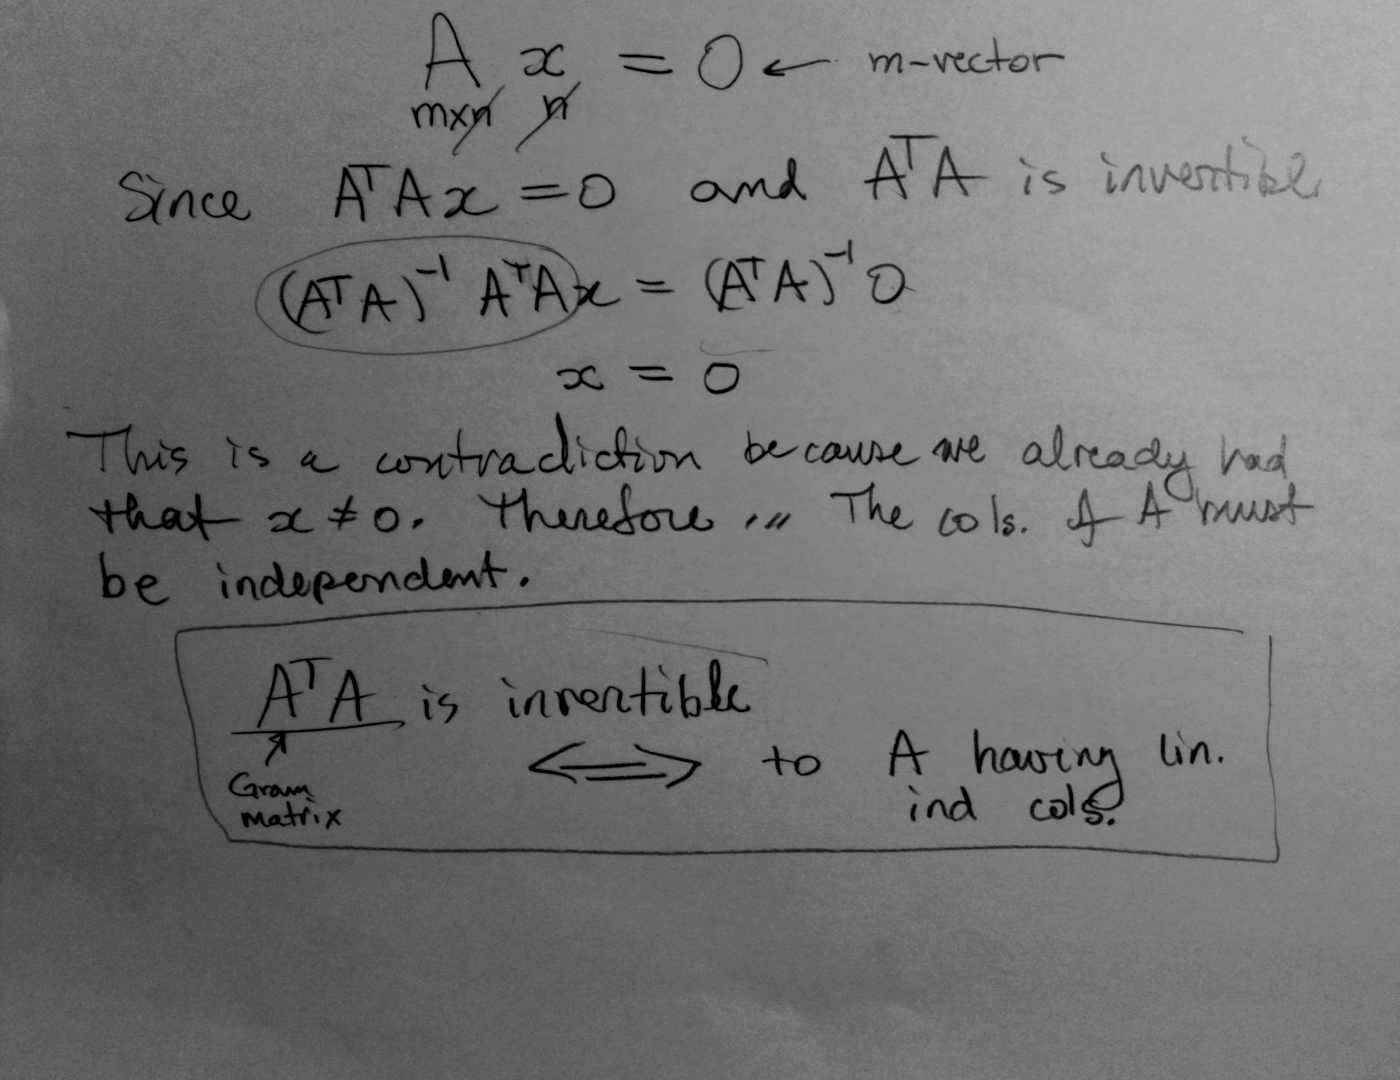 A x = 0 ← m-vector
m×n n
Since AᵀAx = 0 and AᵀA is invertible
(AᵀA)⁻¹ AᵀAx = (AᵀA)⁻¹0
x = 0
This is a contradiction because we already had
that x ≠ 0. Therefore ... The cols. of A must
be independent.
AᵀA is invertible
⟺ to A having lin.
Gram
ind cols.
matrix